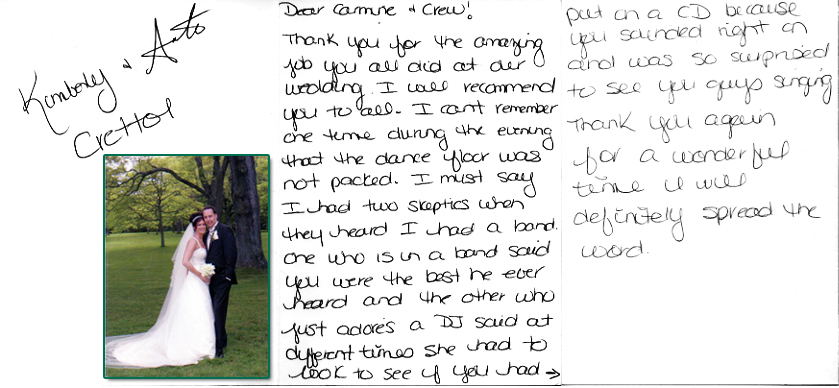 Kimberly & Anto
Crettol
Dear Carmine & Crew!
Thank you for the amazing
job you all did at our
wedding. I will recommend
you to all. I cant remember
one time during the evening
that the dance floor was
not packed. I must say
I had two skeptics when
they heard I had a band.
one who is in a band said
you were the best he ever
heard and the other who
just adores a DJ said at
different times she had to
look to see if you had →
put on a CD because
you sounded right on
and was so surprised
to see you guys singing
Thank you again
for a wonderful
time I will
definitely spread the
word.